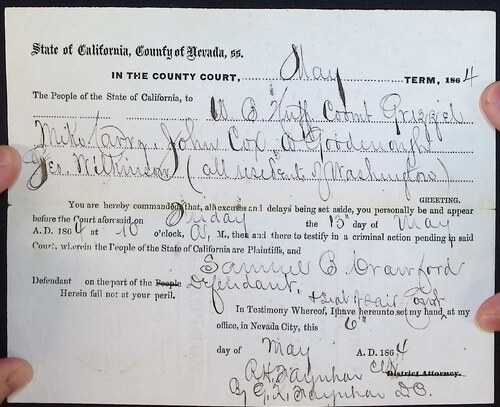 State of California, County of Nevada, ss.
IN THE COUNTY COURT, May TERM, 1864
The People of the State of California, to W B Huff Grizzel
Mike John Cox, Goodnought
Geo Wilkinson (all resident of Washington)
GREETING.
You are hereby commanded that, all excuses and delays being set aside, you personally be and appear
before the Court aforesaid, on Friday the 13" day of May
A. D. 1864 at 10 o'clock, A, M., then and there to testify in a criminal action pending in said
Court, wherein the People of the State of California are Plaintiffs, and
Samuel B. Crawford
Defendant on the part of the People Defendant.
Herein fail not at your peril. & Seal of said Court
In Testimony Whereof, I have hereunto set my hand, at my
office, in Nevada City, this 6"
day of May A. D. 1864
District Attorney.
By G. K. Farquhar D.C.